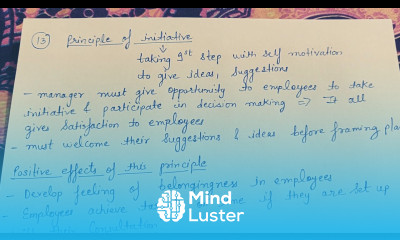 13) Principle of initiative
taking 1st step with self motivation
to give ideas, suggestions
- manager must give opportunity to employees to take
initiative & participate in decision making => It all
gives satisfaction to employees
- must welcome their suggestions & ideas before framing plan
Positive effects of this principle
- Develop feeling of belongingness in employees
- Employees achieve if they are set up
Mind
Luster